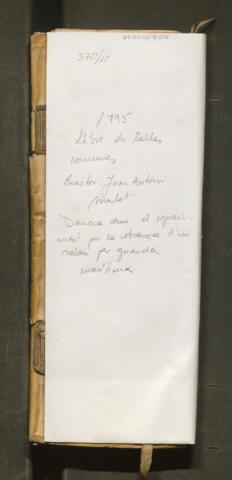 570/10
1795
Llibre de talles
comunes
Exactor: Joan Antoni
Darrera duu el reparti-
ment per la cobrança d'un
per guarda
marítima